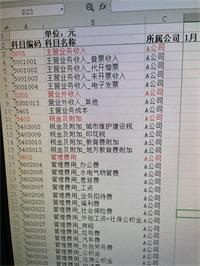 D23
A B C
单位：元
科目编码 科目名称 所属公司 1月
5001 主营业务收入 A公司
5001001 主营业务收入_普票收入 A公司
5001002 主营业务收入_代开增票 A公司
5001003 主营业务收入_未开票收入 A公司
5001004 主营业务收入_电子发票 A公司
5301 营业外收入 A公司
5301013 营业外收入_其他 A公司
5401 主营业务成本 A公司
5403 税金及附加 A公司
5403403 税金及附加_城市维护建设税 A公司
税金及附加_印花税 A公司
税金及附加_教育费附加 A公司
税金及附加_地方教育费附加 A公司
5602 管理费用 A公司
管理费用_办公费 A公司
管理费用_水电气物管费 A公司
管理费用_差旅费 A公司
管理费用_工资 A公司
管理费用_业务招待费 A公司
管理费用_福利费 A公司
管理费用_社会保险费 A公司
管理费用_外派工资+社保公积金 A公司
管理费用_房租 A公司
A公司
管理费用_汽车费 A公司
A公司
管理费用_公积金 A公司